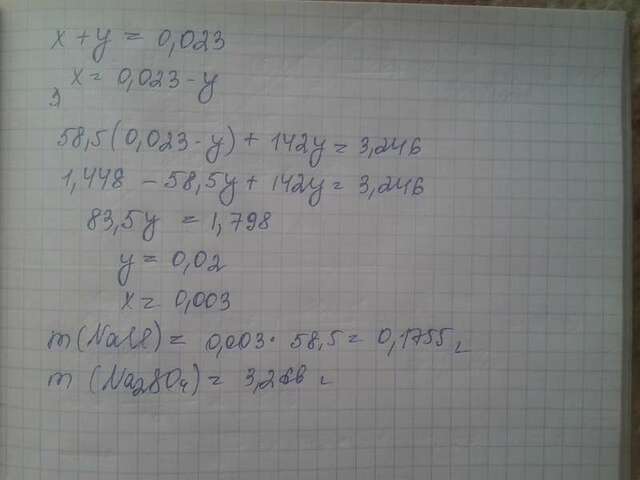 x + y = 0,023
x = 0,023 - y
3
58,5(0,023 - y) + 142y = 3,246
1,448 - 58,5y + 142y = 3,246
83,5y = 1,798
y = 0,02
x = 0,003
m(NaCl) = 0,003 · 58,5 = 0,1755 г
m (Na₂SO₄) = г